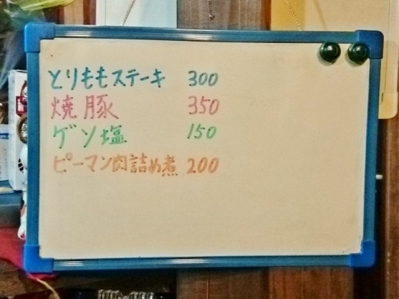 とりももステーキ 300
焼豚 350
ゲソ塩 150
ピーマン肉詰め煮 200